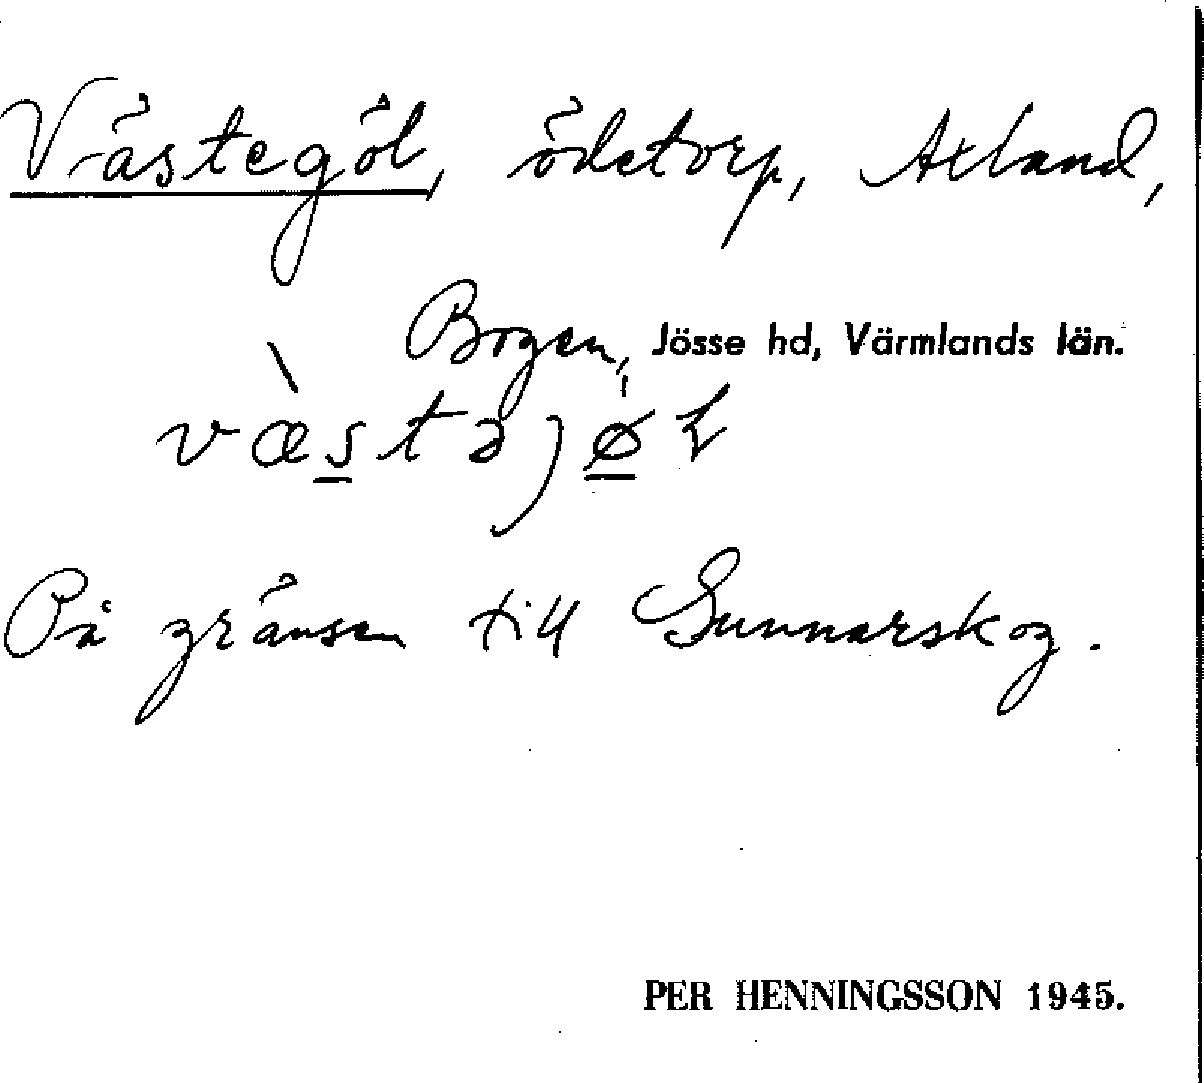 Västegöl, ödetorp, Axland,
Bogen, Jösse hd, Värmlands län.
På gränsen till Gunnarskog.
PER HENNINGSSON 1945.